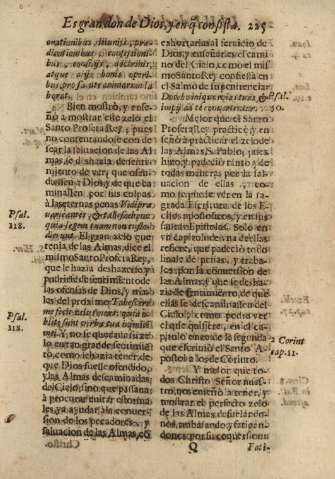 Es gran don de Dios, y en q̃ consista. 225
orationibus, ieiunijs, præ-
dicationibus,
bus, consilijs, disciplinis,
atque orijs bonis operi-
bus, pro salute animarum la
borat.
Bien mostrò, y enseñ-
ò a mostrar este zelo el
Santo Profeta Rey, pues
no contentandose con de-
sear la saluacion de las Al-
mas,
miento de ver, que
a Dios, y de que ca-
minassen por sus culpas
à las eternas penas. Vidi præ-
uaricantes, & tabescebam:
quia eloquia tua non custodie-
runt. El gran zelo que
tenia de las Almas, dize el
mismo Santo Profeta Rey,
que le hazia deshazerse, y a
pudrirse de sentimiento de
las ofensas de Dios, y males
del proximo: Tabescere
me fecit zelus meus: quia o-
bliti sunt verba tua inimici
mei. Y, no se quedaua su ze-
lo en tan grande sentimiẽ-
to, como le hazia el ver,
que Dios fuesse ofendido,
y las Almas descaminadas
del Cielo, sino que passaua
à procurar euitar estos ma-
les, y a ayudar a la conuer-
sion de los pecadores, y
saluacion de las Almas, cõ
exhortarlas al seruicio de
Dios, y enseñarles el ca-
mino del Cielo, como el mis-
mo Santo Rey confiessa en
el Salmo de su penitencia:
Docebo iniquos vias tuas, & im-
pij ad te conuertentur.
Mejor que el Santo
Profeta Rey practicò, y en-
señò a practicar el zelo de
las Almas S. Pablo, pues
hizo, y padeciò tanto de
todas maneras por la sal-
uacion de ellas, co-
mo se puede ver en la sa-
grada Escritura de los E-
chos Apostolicos, y en sus
santas Epistolas. Solo en
vn capitulo de vna de ellas
refiere, que padeciò todo
linaje de penas, y traba-
jos por la conuersion de
las Almas, y que se desha-
zia de sentimiento, de que
ellas se descaminassen del
Cielo, como podra ver
el que quisiere, en el ca-
pitulo onze de la segunda
que escriuiò el Santo A-
postol a los de Corinto.
Y mejor que to-
dos Christo Señor nues-
tro, nos enseñò a tener, y
mostrar el perfecto zelo
de las Almas, desuelando-
nos, trabajando, y fatigãdo
Psal.
118.
Psal.
118.
Psal.
50.
2. Corint
cap. 11.
Q